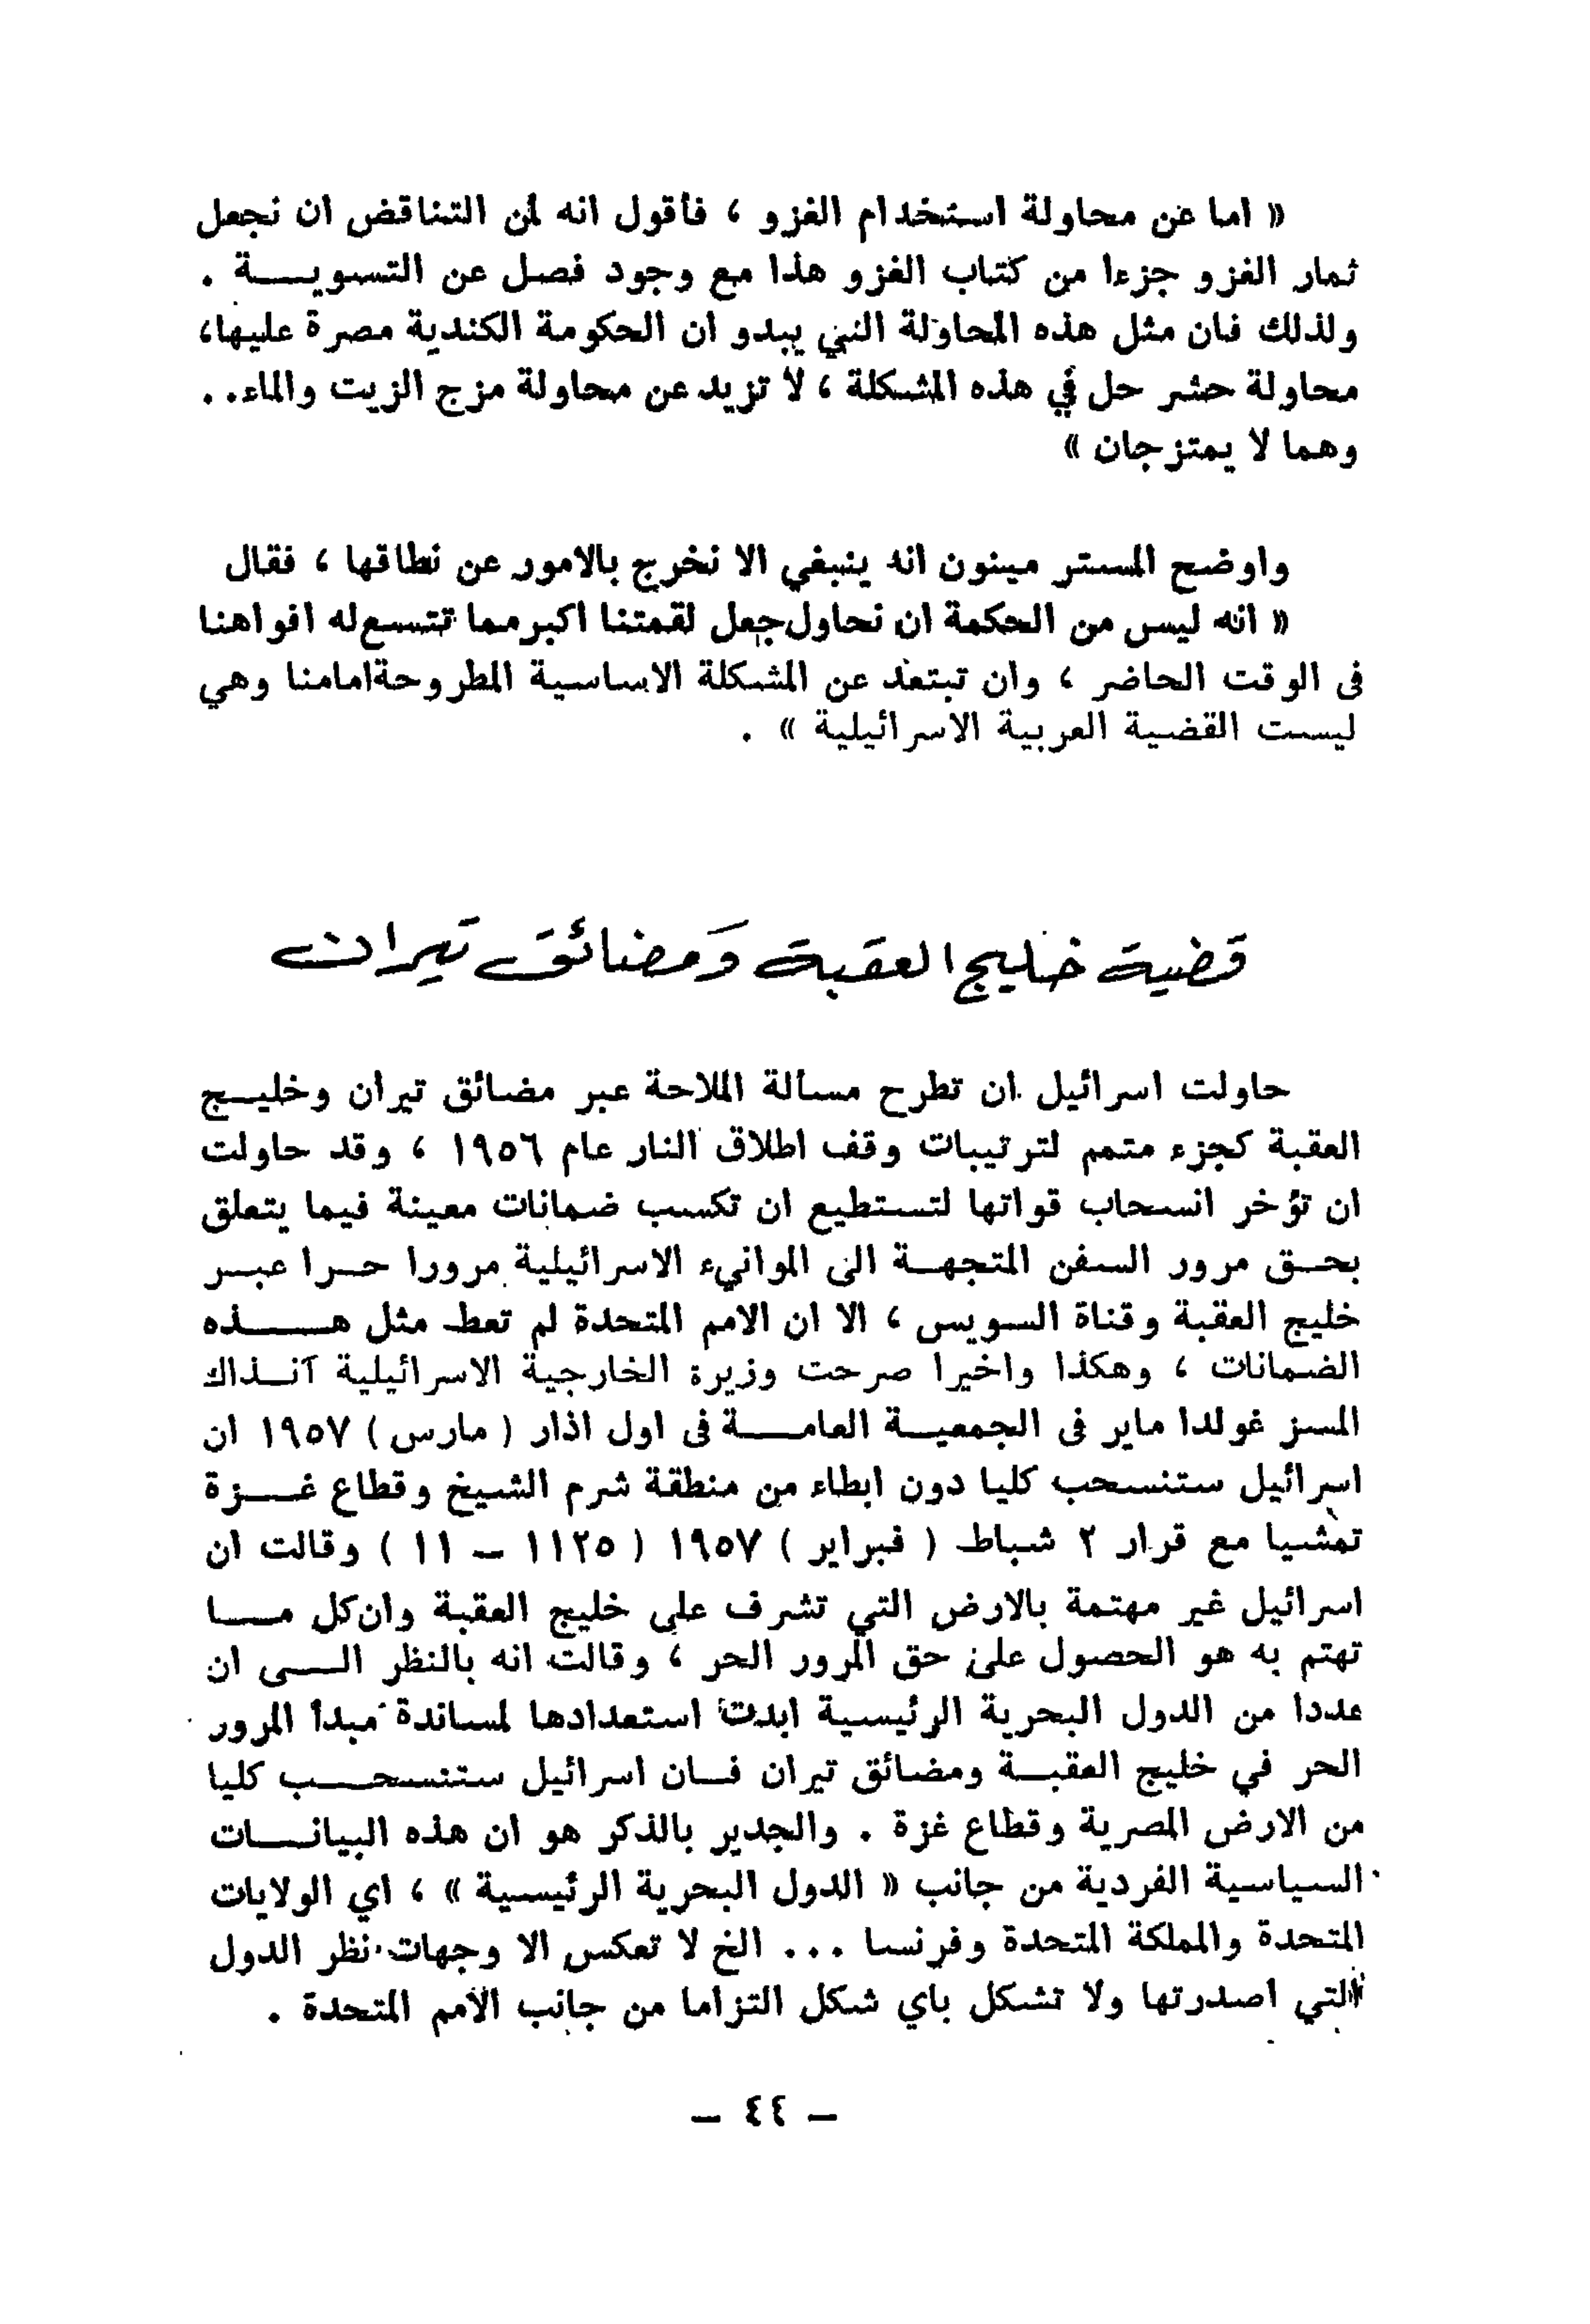 « اما عن محاولة استخدام الغزو ، فأقول انه لمن التناقض ان نجعل
ثمار الغزو جزءا من كتاب الغزو هذا مع وجود فصل عن التسويــة .
ولذلك فان مثل هذه المحاولة التي يبدو ان الحكومة الكندية مصرة عليها،
محاولة حشر حل في هذه المشكلة ، لا تزيد عن محاولة مزج الزيت والماء..
وهما لا يمتزجان »
واوضح المستر مينون انه ينبغي الا نخرج بالامور عن نطاقها ، فقال
« انه ليس من الحكمة ان نحاول جعل لقمتنا اكبر مما تتسع له افواهنا
فى الوقت الحاضر ، وان تبتعد عن المشكلة الاساسية المطروحة امامنا وهي
ليست القضية العربية الاسرائيلية » .
قضية خليج العقبة وَمضائق تيران
حاولت اسرائيل ان تطرح مسألة الملاحة عبر مضائق تيران وخليـج
العقبة كجزء متمم لترتيبات وقف اطلاق النار عام ١٩٥٦ ، وقد حاولت
ان تؤخر انسحاب قواتها لتستطيع ان تكسب ضمانات معينة فيما يتعلق
بحـق مرور السفن المتجهـة الى الموانيء الاسرائيلية مرورا حـرا عبـر
خليج العقبة وقناة السويس ، الا ان الامم المتحدة لم تعط مثل هـــذه
الضمانات ، وهكذا واخيرا صرحت وزيرة الخارجية الاسرائيلية آنـذاك
المسز غولدا ماير فى الجمعيـة العامــة فى اول اذار ( مارس ) ١٩٥٧ ان
اسرائيل ستنسحب كليا دون ابطاء من منطقة شرم الشيخ وقطاع غــزة
تمشيا مع قرار ٢ شباط ( فبراير ) ١٩٥٧ ( ١١٢٥ – ١١ ) وقالت ان
اسرائيل غير مهتمة بالارض التي تشرف على خليج العقبة وان كل مــا
تهتم به هو الحصول على حق المرور الحر ، وقالت انه بالنظر الــى ان
عددا من الدول البحرية الرئيسية ابدت استعدادها لمساندة مبدأ المرور
الحر في خليج العقبـة ومضائق تيران فـان اسرائيل ستنسحــب كليا
من الارض المصرية وقطاع غزة . والجدير بالذكر هو ان هذه البيانــات
السياسية الفردية من جانب « الدول البحرية الرئيسية » ، اي الولايات
المتحدة والمملكة المتحدة وفرنسا ... الخ لا تعكس الا وجهات نظر الدول
التي اصدرتها ولا تشكل باي شكل التزاما من جانب الأمم المتحدة .
– ٤٤ –